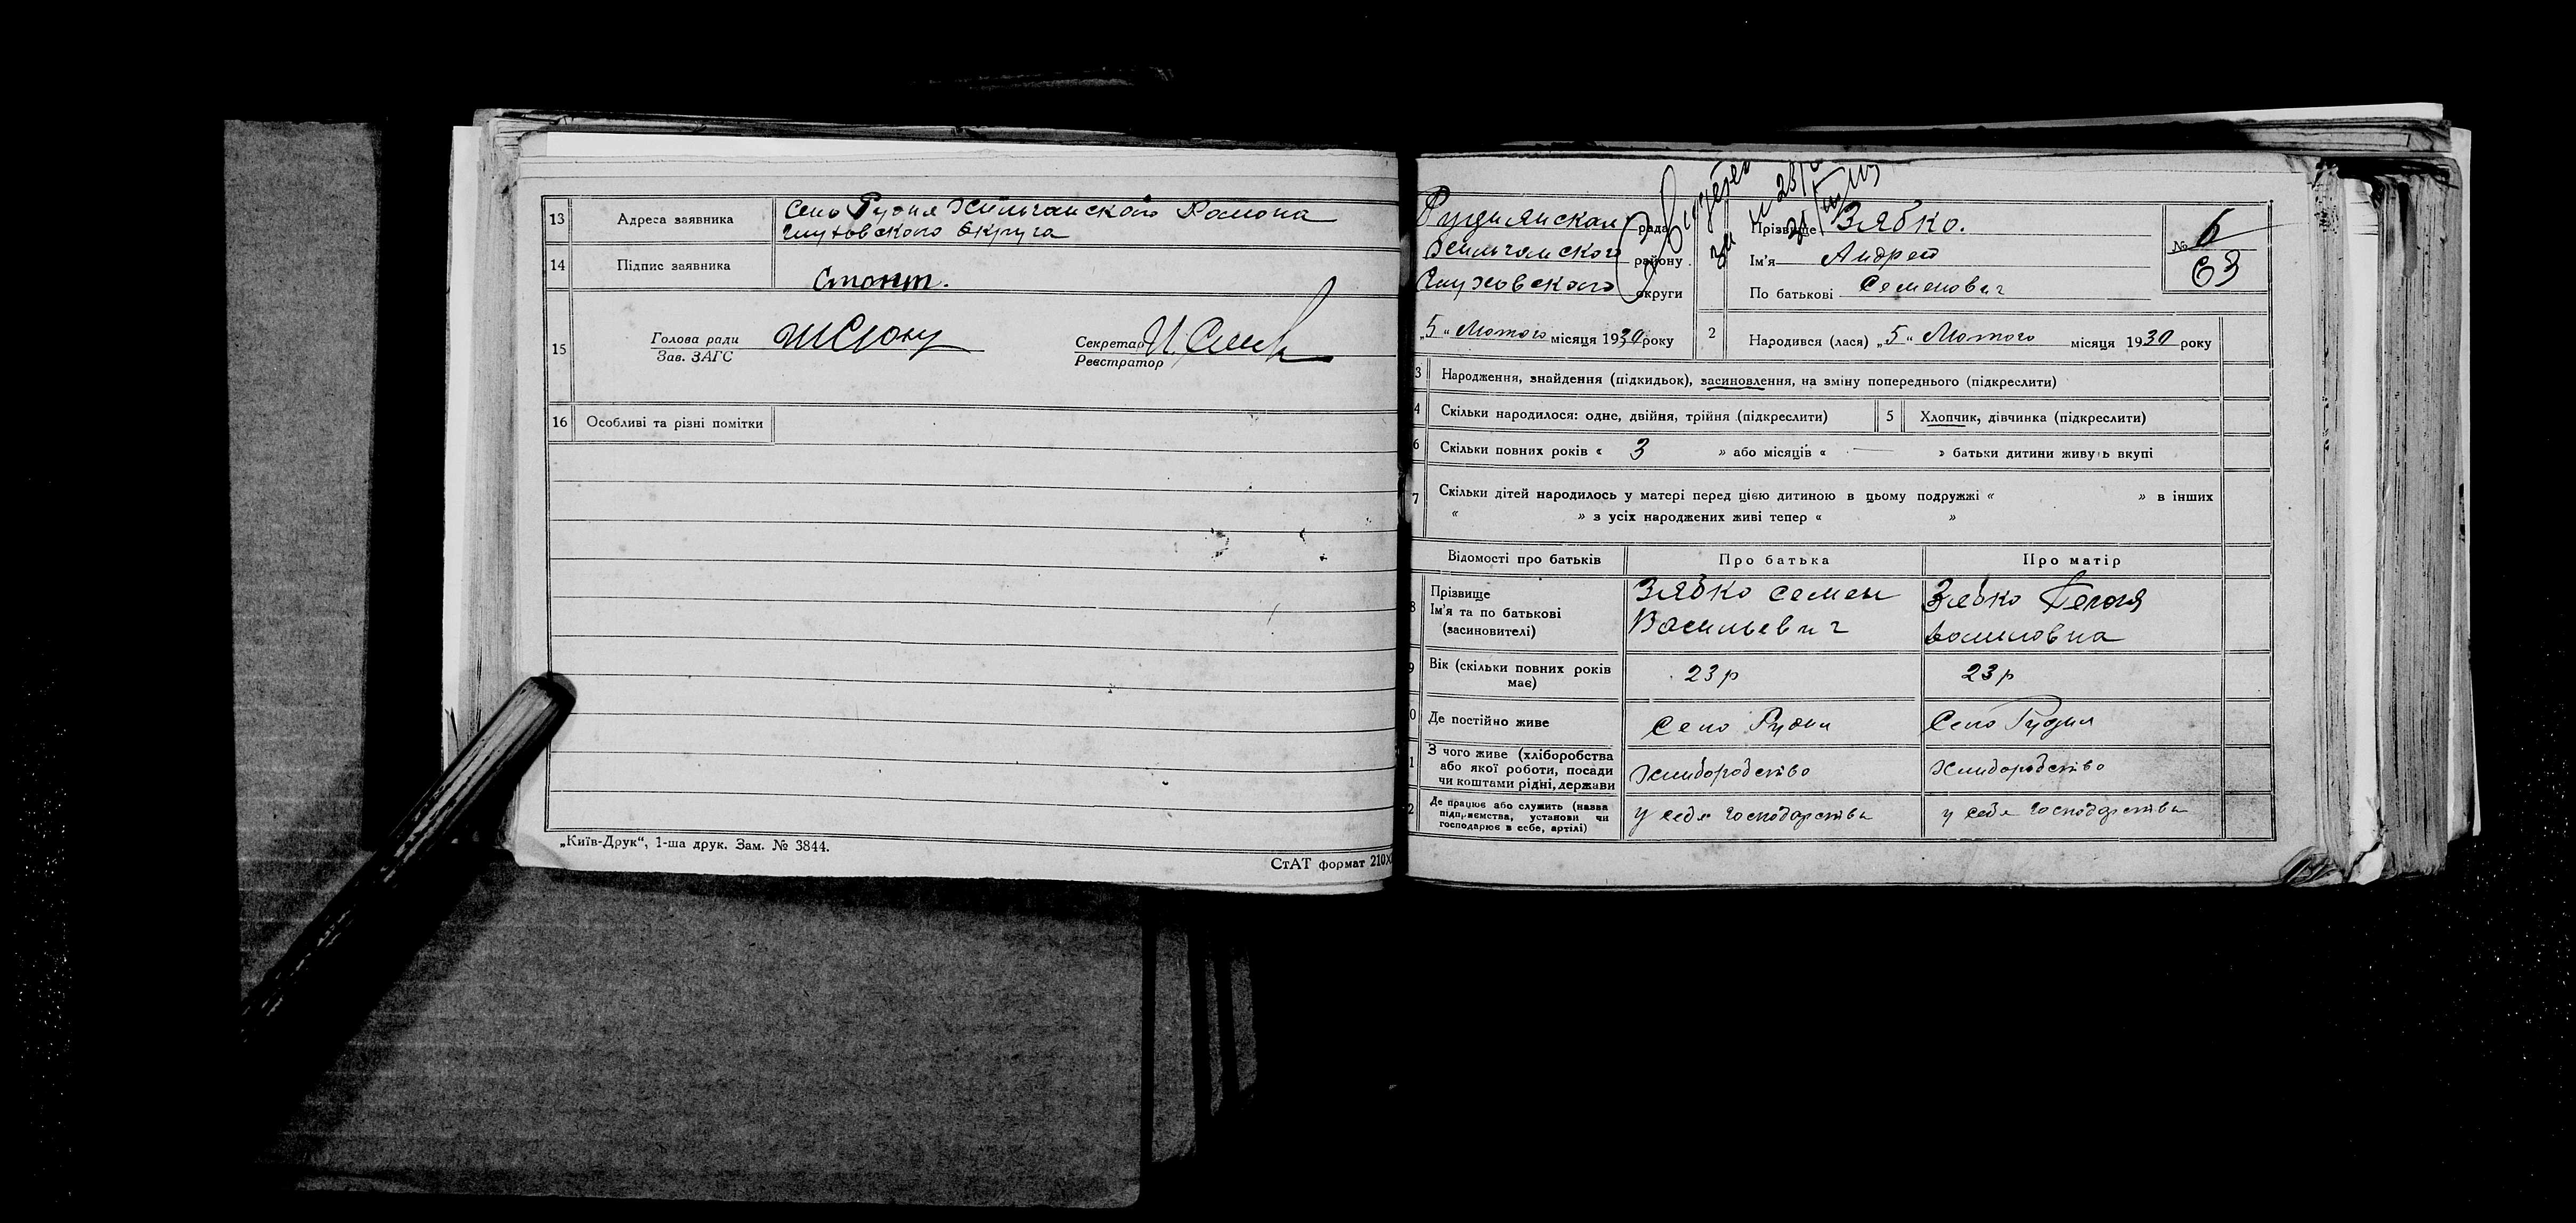 13 Адреса заявника Село Рудня Хильчанского Района
Глуховского Округа
14 Підпис заявника
15 Голова ради
Зав. ЗАГС
Секретар
Реєстратор
16 Особливі та різні помітки
„Київ-Друк“, 1-ша друк. Зам. № 3844.
СтАТ формат 210X
Руднянская рада
Хильчанского району
Глуховского округи
„5“ Лютого місяця 1930 року
Прізвище Зябко.
Ім'я Андрей
По батькові Семенович
№ 6
63
2 Народився (лася) „5“ Лютого місяця 1930 року
3 Народження, знайдення (підкидьок), засиновлення, на зміну попереднього (підкреслити)
4 Скільки народилося: одне, двійня, трійня (підкреслити) 5 Хлопчик, дівчинка (підкреслити)
6 Скільки повних років « 3 » або місяців « — » батьки дитини живуть вкупі
7 Скільки дітей народилось у матері перед цією дитиною в цьому подружжі « » в інших
« » з усіх народжених живі тепер « »
Відомості про батьків Про батька Про матір
8 Прізвище
Ім'я та по батькові
(засиновителі)
Зябко Семен
Васильевич
Зябко
9 Вік (скільки повних років має) 23 р 23 р
0 Де постійно живе Село Рудни Село Рудня
1 З чого живе (хліборобства
або якої роботи, посади
чи коштами рідні, держави
Хлиборобство Хлиборобство
2 Де працює або служить (назва
підприємства, установи чи
господарює в себе, артілі)
у себе господарстви у себе господарстви